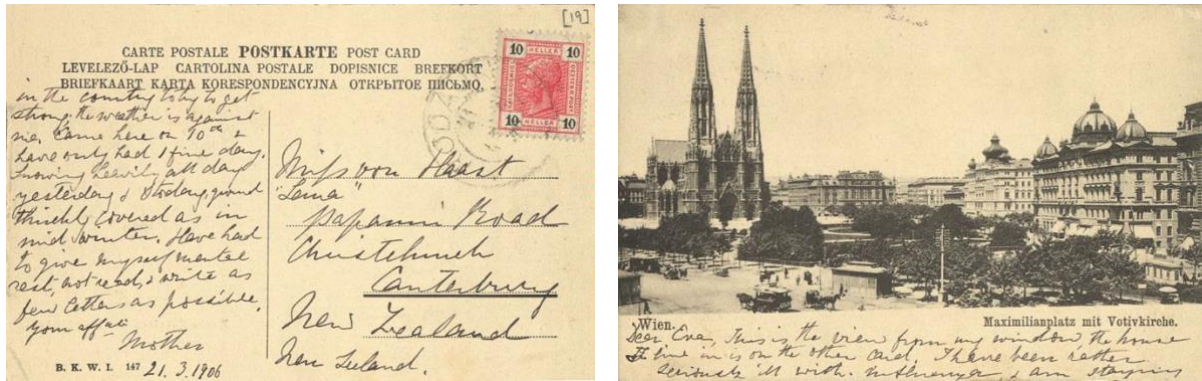 [19]
CARTE POSTALE POSTKARTE POST CARD
LEVELEZŐ-LAP CARTOLINA POSTALE DOPISNICE BREFKORT
BRIEFKAART KARTA KORESPONDENCYJNA ОТКРЫТОЕ ПИСЬМО.
10 HELLER 10
10 HELLER 10
in the country to try to get
strong, the weather is against
me. Came here on 10th &
have only had 1 fine day.
Snowing heavily all day
yesterday & today, ground
thickly covered as in
mid winter. Have had
to give myself mental
rest, not read, & write as
few letters as possible.
Your affte
Mother
21.3.1906
B. K. W. I. 147
Miss von Haast
"Lama"
Papanui Road
Christchurch
Canterbury
New Zealand
Neu Seeland.
Wien.
Maximilianplatz mit Votivkirche.
Dear Eva, This is the view from my window, the house
I live in is on the other card. I have been rather
seriously ill with influenza, & am staying